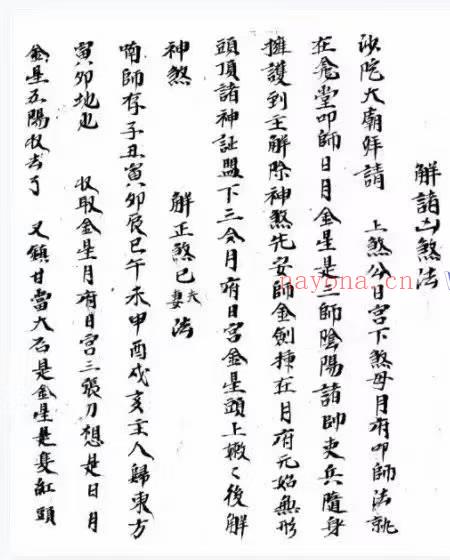 解諸凶煞法
沙陀大廟拜請 上煞公日宮下煞母月府叩師法就
在堂叩師日月金星是三師陰陽諸師吏兵隨身
擁護到主解除神煞先安師金劍揀在月府元始無形
頭頂諸神証盟下三分月府日宮金星頭上後解
神煞 解正煞已夫妻法
喃師存子丑寅卯辰巳午未申酉戌亥主人歸東方
寅卯地也 収取金星月府日宮三張刀想是日月
金星五陽収去了 又鎮甘當大石是金星是隻紅頭
nayona.cn